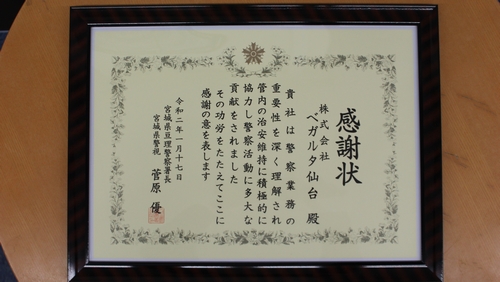 感謝状
株式会社
ベガルタ仙台 殿
貴社は警察業務の
重要性を深く理解され
管内の治安維持に積極的に
協力し警察活動に多大な
貢献をされました
その功労をたたえてここに
感謝の意を表します
令和二年一月十七日
宮城県亘理警察署長
宮城県警視 菅原 優